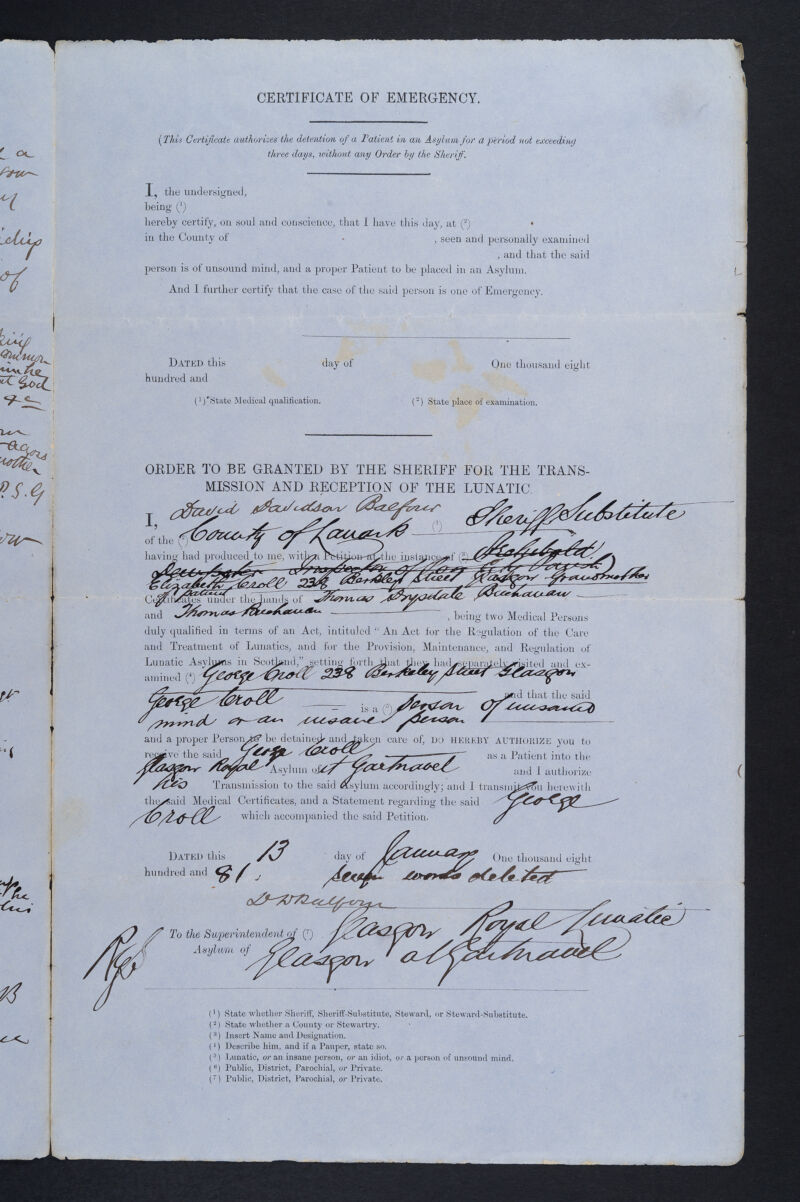 CERTIFICATE OF EMERGENCY.
(This Certificate authorizes the detention of a Patient in an Asylum for a period not exceeding
three days, without any Order by the Sheriff.
I, the undersigned,
being (1)
hereby certify, on soul and conscience, that I have this day, at (2)
in the County of , seen and personally examined
, and that the said
person is of unsound mind, and a proper Patient to be placed in an Asylum.
And I further certify that the case of the said person is one of Emergency.
DATED this day of One thousand eight
hundred and
(1) State Medical qualification. (2) State place of examination.
ORDER TO BE GRANTED BY THE SHERIFF FOR THE TRANS-
MISSION AND RECEPTION OF THE LUNATIC.
I, David Davidson Balfour (1) Sheriff Substitute
of the (2) County of Lanark
having had produced to me, with a Petition at the instance of (3) Archibald
Inspector of Poor City Parish
Elizabeth Croll 238 Berkeley Street Glasgow Grandmother
of patient
Certificates under the hands of Thomas Drysdale Buchanan
and Thomas Buchanan , being two Medical Persons
duly qualified in terms of an Act, intituled "An Act for the Regulation of the Care
and Treatment of Lunatics, and for the Provision, Maintenance, and Regulation of
Lunatic Asylums in Scotland," setting forth that they had separately visited and ex-
amined (4) George Croll 238 Berkeley Street Glasgow
and that the said
George Croll is a (5) person of unsound
mind or an insane person
and a proper Person to be detained and taken care of, DO HEREBY AUTHORIZE you to
receive the said George Croll as a Patient into the
Glasgow Royal Asylum of at Gartnavel and I authorize
his Transmission to the said Asylum accordingly; and I transmit you herewith
the said Medical Certificates, and a Statement regarding the said George
Croll which accompanied the said Petition.
DATED this 13 day of January One thousand eight
hundred and 81. seven words deleted
D D Balfour
To the Superintendent of (7) Glasgow Royal Lunatic
Asylum of Glasgow at Gartnavel
(1) State whether Sheriff, Sheriff-Substitute, Steward, or Steward-Substitute.
(2) State whether a County or Stewartry.
(3) Insert Name and Designation.
(4) Describe him, and if a Pauper, state so.
(5) Lunatic, or an insane person, or an idiot, or a person of unsound mind.
(6) Public, District, Parochial, or Private.
(7) Public, District, Parochial, or Private.